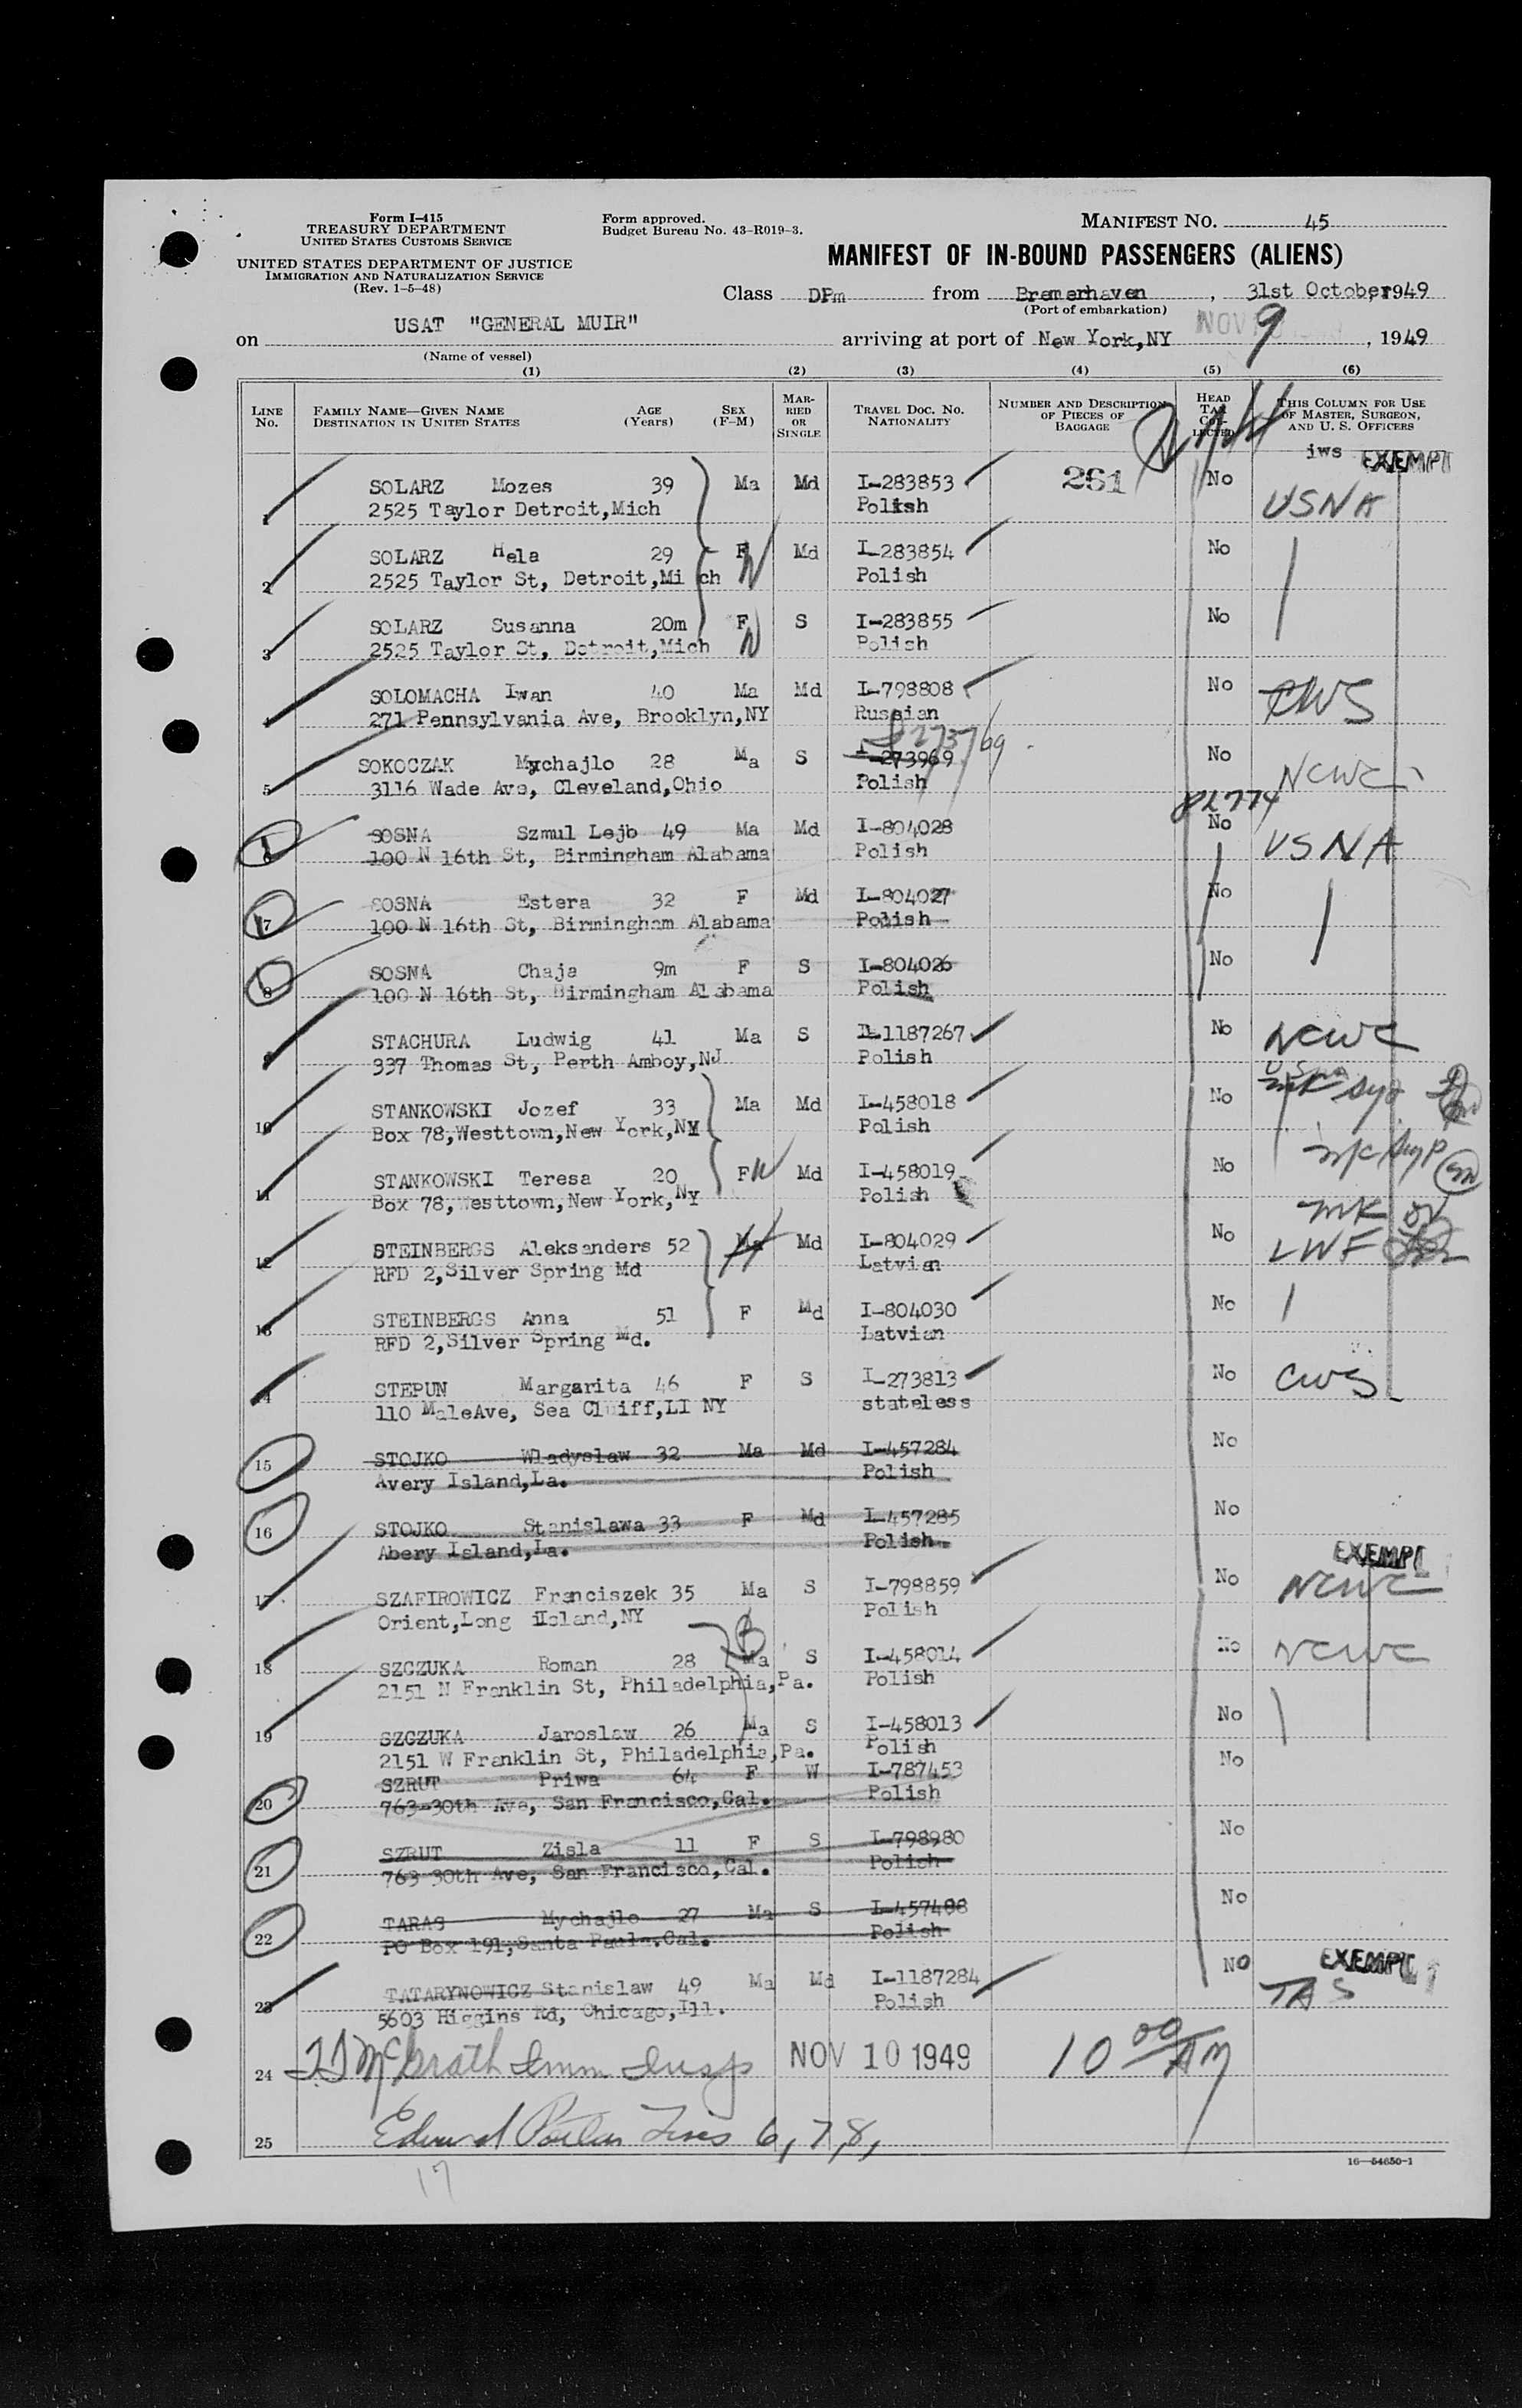 Form I-415
TREASURY DEPARTMENT
UNITED STATES CUSTOMS SERVICE
UNITED STATES DEPARTMENT OF JUSTICE
IMMIGRATION AND NATURALIZATION SERVICE
(Rev. 1-5-48)
Form approved.
Budget Bureau No. 43-R019-3.
MANIFEST NO. 45
MANIFEST OF IN-BOUND PASSENGERS (ALIENS)
Class DPm from Bremerhaven, 31st October, 1949
(Port of embarkation)
on USAT "GENERAL MUIR" arriving at port of New York,NY NOV 9, 1949
(Name of vessel)
(1) (2) (3) (4) (5) (6)
LINE NO. FAMILY NAME—GIVEN NAME DESTINATION IN UNITED STATES AGE (Years) SEX (F-M) MARRIED OR SINGLE TRAVEL DOC. NO. NATIONALITY NUMBER AND DESCRIPTION OF PIECES OF BAGGAGE HEAD TAX COLLECTED THIS COLUMN FOR USE OF MASTER, SURGEON, AND U. S. OFFICERS
iws EXEMPT
1 SOLARZ Mozes 39 Ma Md I-283853 261 No USNA
2525 Taylor Detroit,Mich Polish
2 SOLARZ Hela 29 F Md I-283854 No
2525 Taylor St, Detroit,Mi ch Polish
3 SOLARZ Susanna 20m F S I-283855 No
2525 Taylor St, Detroit,Mich Polish
4 SOLOMACHA Iwan 40 Ma Md I-798808 No CWS
271 Pennsylvania Ave, Brooklyn,NY Russian
5 SOKOCZAK Mychajlo 28 Ma S I-273969 273769 No NCWC
3116 Wade Ave, Cleveland,Ohio Polish
6 SOSNA Szmul Lejb 49 Ma Md I-804028 No USNA
100 N 16th St, Birmingham Alabama Polish
7 SOSNA Estera 32 F Md I-804027 No
100 N 16th St, Birmingham Alabama Polish
8 SOSNA Chaja 9m F S I-804026 No
100 N 16th St, Birmingham Alabama Polish
9 STACHURA Ludwig 41 Ma S I-1187267 No NCWC
337 Thomas St, Perth Amboy,NJ Polish
10 STANKOWSKI Jozef 33 Ma Md I-458018 No
Box 78,Westtown,New York,NY Polish
11 STANKOWSKI Teresa 20 F Md I-458019 No
Box 78,Westtown,New York,NY Polish
12 STEINBERGS Aleksanders 52 Ma Md I-804029 No LWF
RFD 2,Silver Spring Md Latvian
13 STEINBERGS Anna 51 F Md I-804030 No
RFD 2,Silver Spring Md. Latvian
14 STEPUN Margarita 46 F S I-273813 No CWS
110 MaleAve, Sea Cliff,LI NY stateless
15 STOJKO Wladyslaw 32 Ma Md I-457284 No
Avery Island,La. Polish
16 STOJKO Stanislawa 33 F Md I-457285 No
Abery Island,La. Polish
EXEMPT
17 SZAFIROWICZ Franciszek 35 Ma S I-798859 No NCWC
Orient,Long Island,NY Polish
18 SZCZUKA Roman 28 Ma S I-458014 No NCWC
2151 N Franklin St, Philadelphia,Pa. Polish
19 SZCZUKA Jaroslaw 26 Ma S I-458013 No
2151 W Franklin St, Philadelphia,Pa. Polish
20 SZRUT Priwa 64 F W I-787453 No
763-30th Ave, San Francisco,Cal. Polish
21 SZRUT Zisla 11 F S I-798980 No
763 30th Ave, San Francisco,Cal. Polish
22 TARAS Mychajlo 27 Ma S I-457488 No
PO Box 191,Santa Paula,Cal. Polish
23 TATARYNOWICZ Stanislaw 49 Ma Md I-1187284 NO EXEMPT TAS
5603 Higgins Rd, Chicago,Ill. Polish
24 McGrath Imm Insp NOV 10 1949 10 00 AM
25 Edward Lines 6, 7, 8,
17
16—54650-1